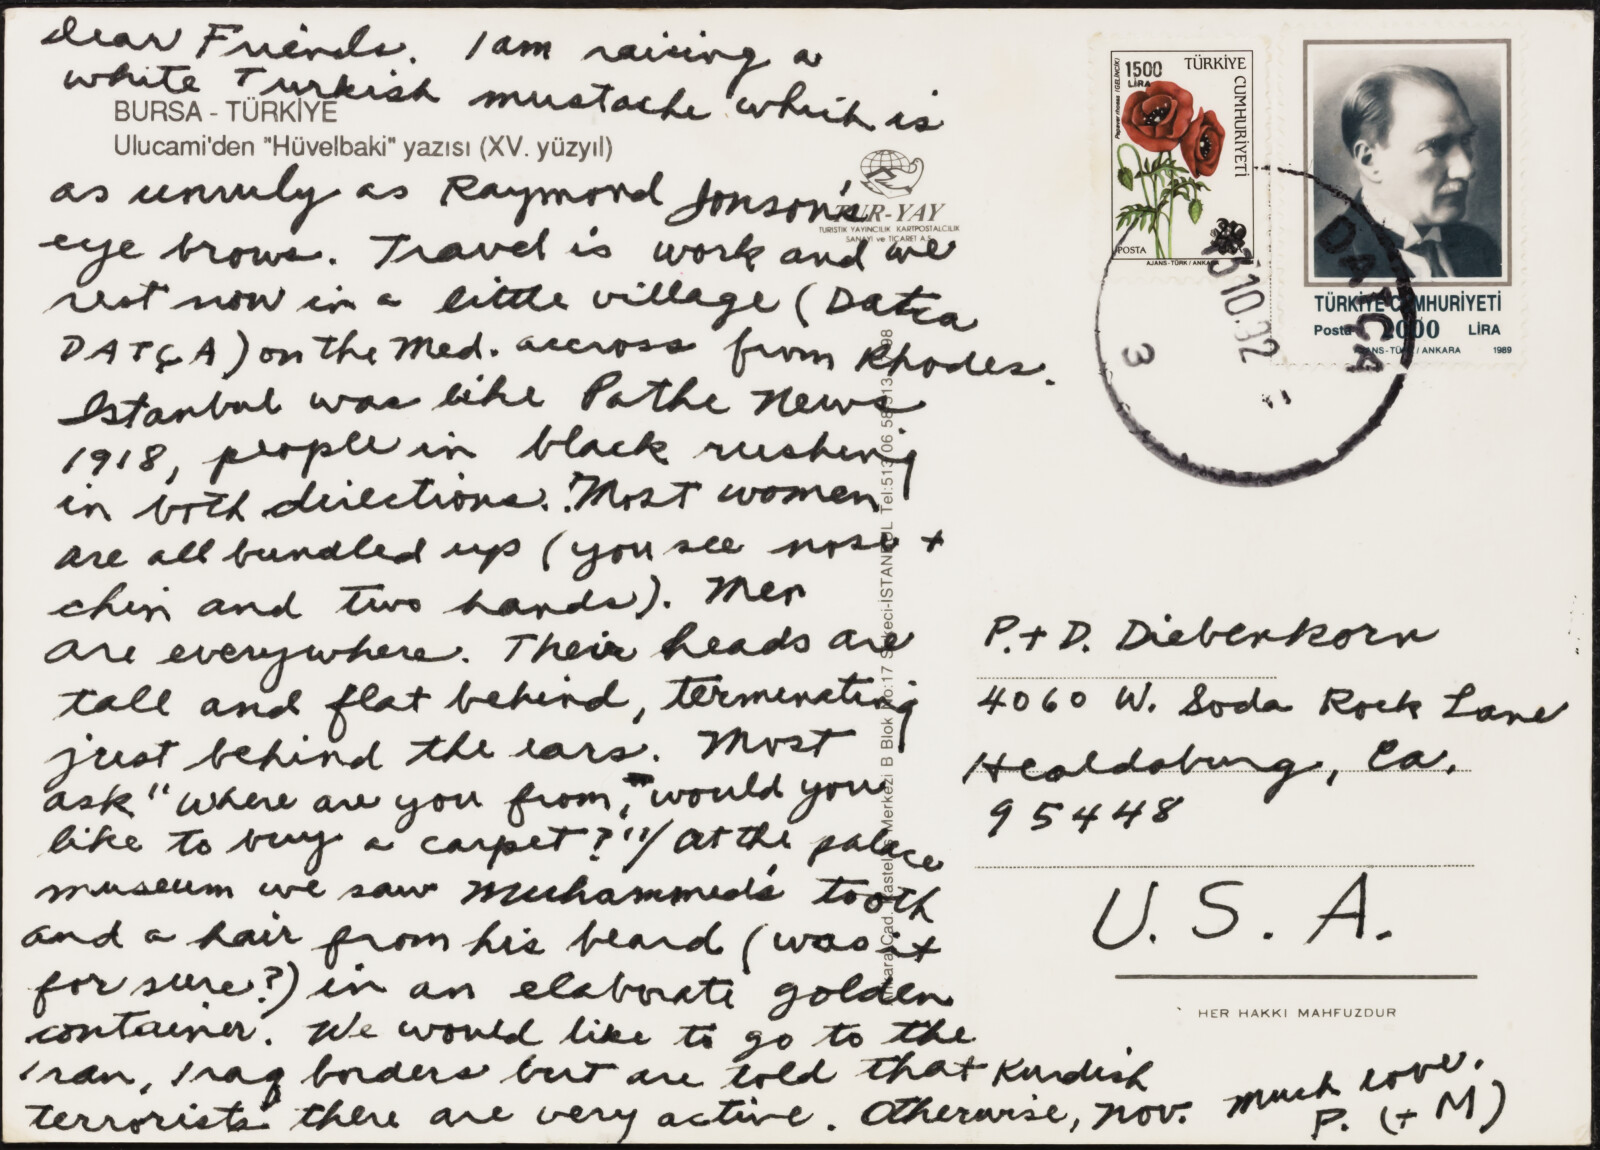 Dear Friends. I am raising a
white Turkish mustache which is
BURSA - TÜRKİYE
Ulucami'den "Hüvelbaki" yazısı (XV. yüzyıl)
as unruly as Raymond Jonson's
eye brows. Travel is work and we
rest now in a little village (Datca
DATÇA) on the Med. accross from Rhodes.
Istanbul was like Pathe News
1918, people in black rushing
in both directions. Most women
are all bundled up (you see nose +
chin and two hands). Men
are everywhere. Their heads are
tall and flat behind, terminating
just behind the ears. Most
ask "where are you from, would you
like to buy a carpet?"/ At the palace
museum we saw Muhammed's tooth
and a hair from his beard (was it
for sure?) in an elaborate golden
container. We would like to go to the
Iran, Iraq borders but are told that Kurdish
terrorists there are very active. Otherwise, nov. Much love.
P. (+ M)
TUR-YAY
TURİSTİK YAYINCILIK KARTPOSTALCILIK
SANAYİ ve TİCARET A.Ş.
Ankara Cad. Merkezi B Blok No:17 Sirkeci-İSTANBUL Tel:513 06 58
1500
LİRA
TÜRKİYE CUMHURİYETİ
Papaver rhoeas (GELİNCİK)
POSTA
AJANS-TÜRK / ANKARA
TÜRKİYE CUMHURİYETİ
Posta 2000 LİRA
AJANS-TÜRK / ANKARA 1989
DATÇA
10.92
3
P. + D. Diebenkorn
4060 W. Soda Rock Lane
Healdsburg, Ca.
95448
U.S.A.
HER HAKKI MAHFUZDUR